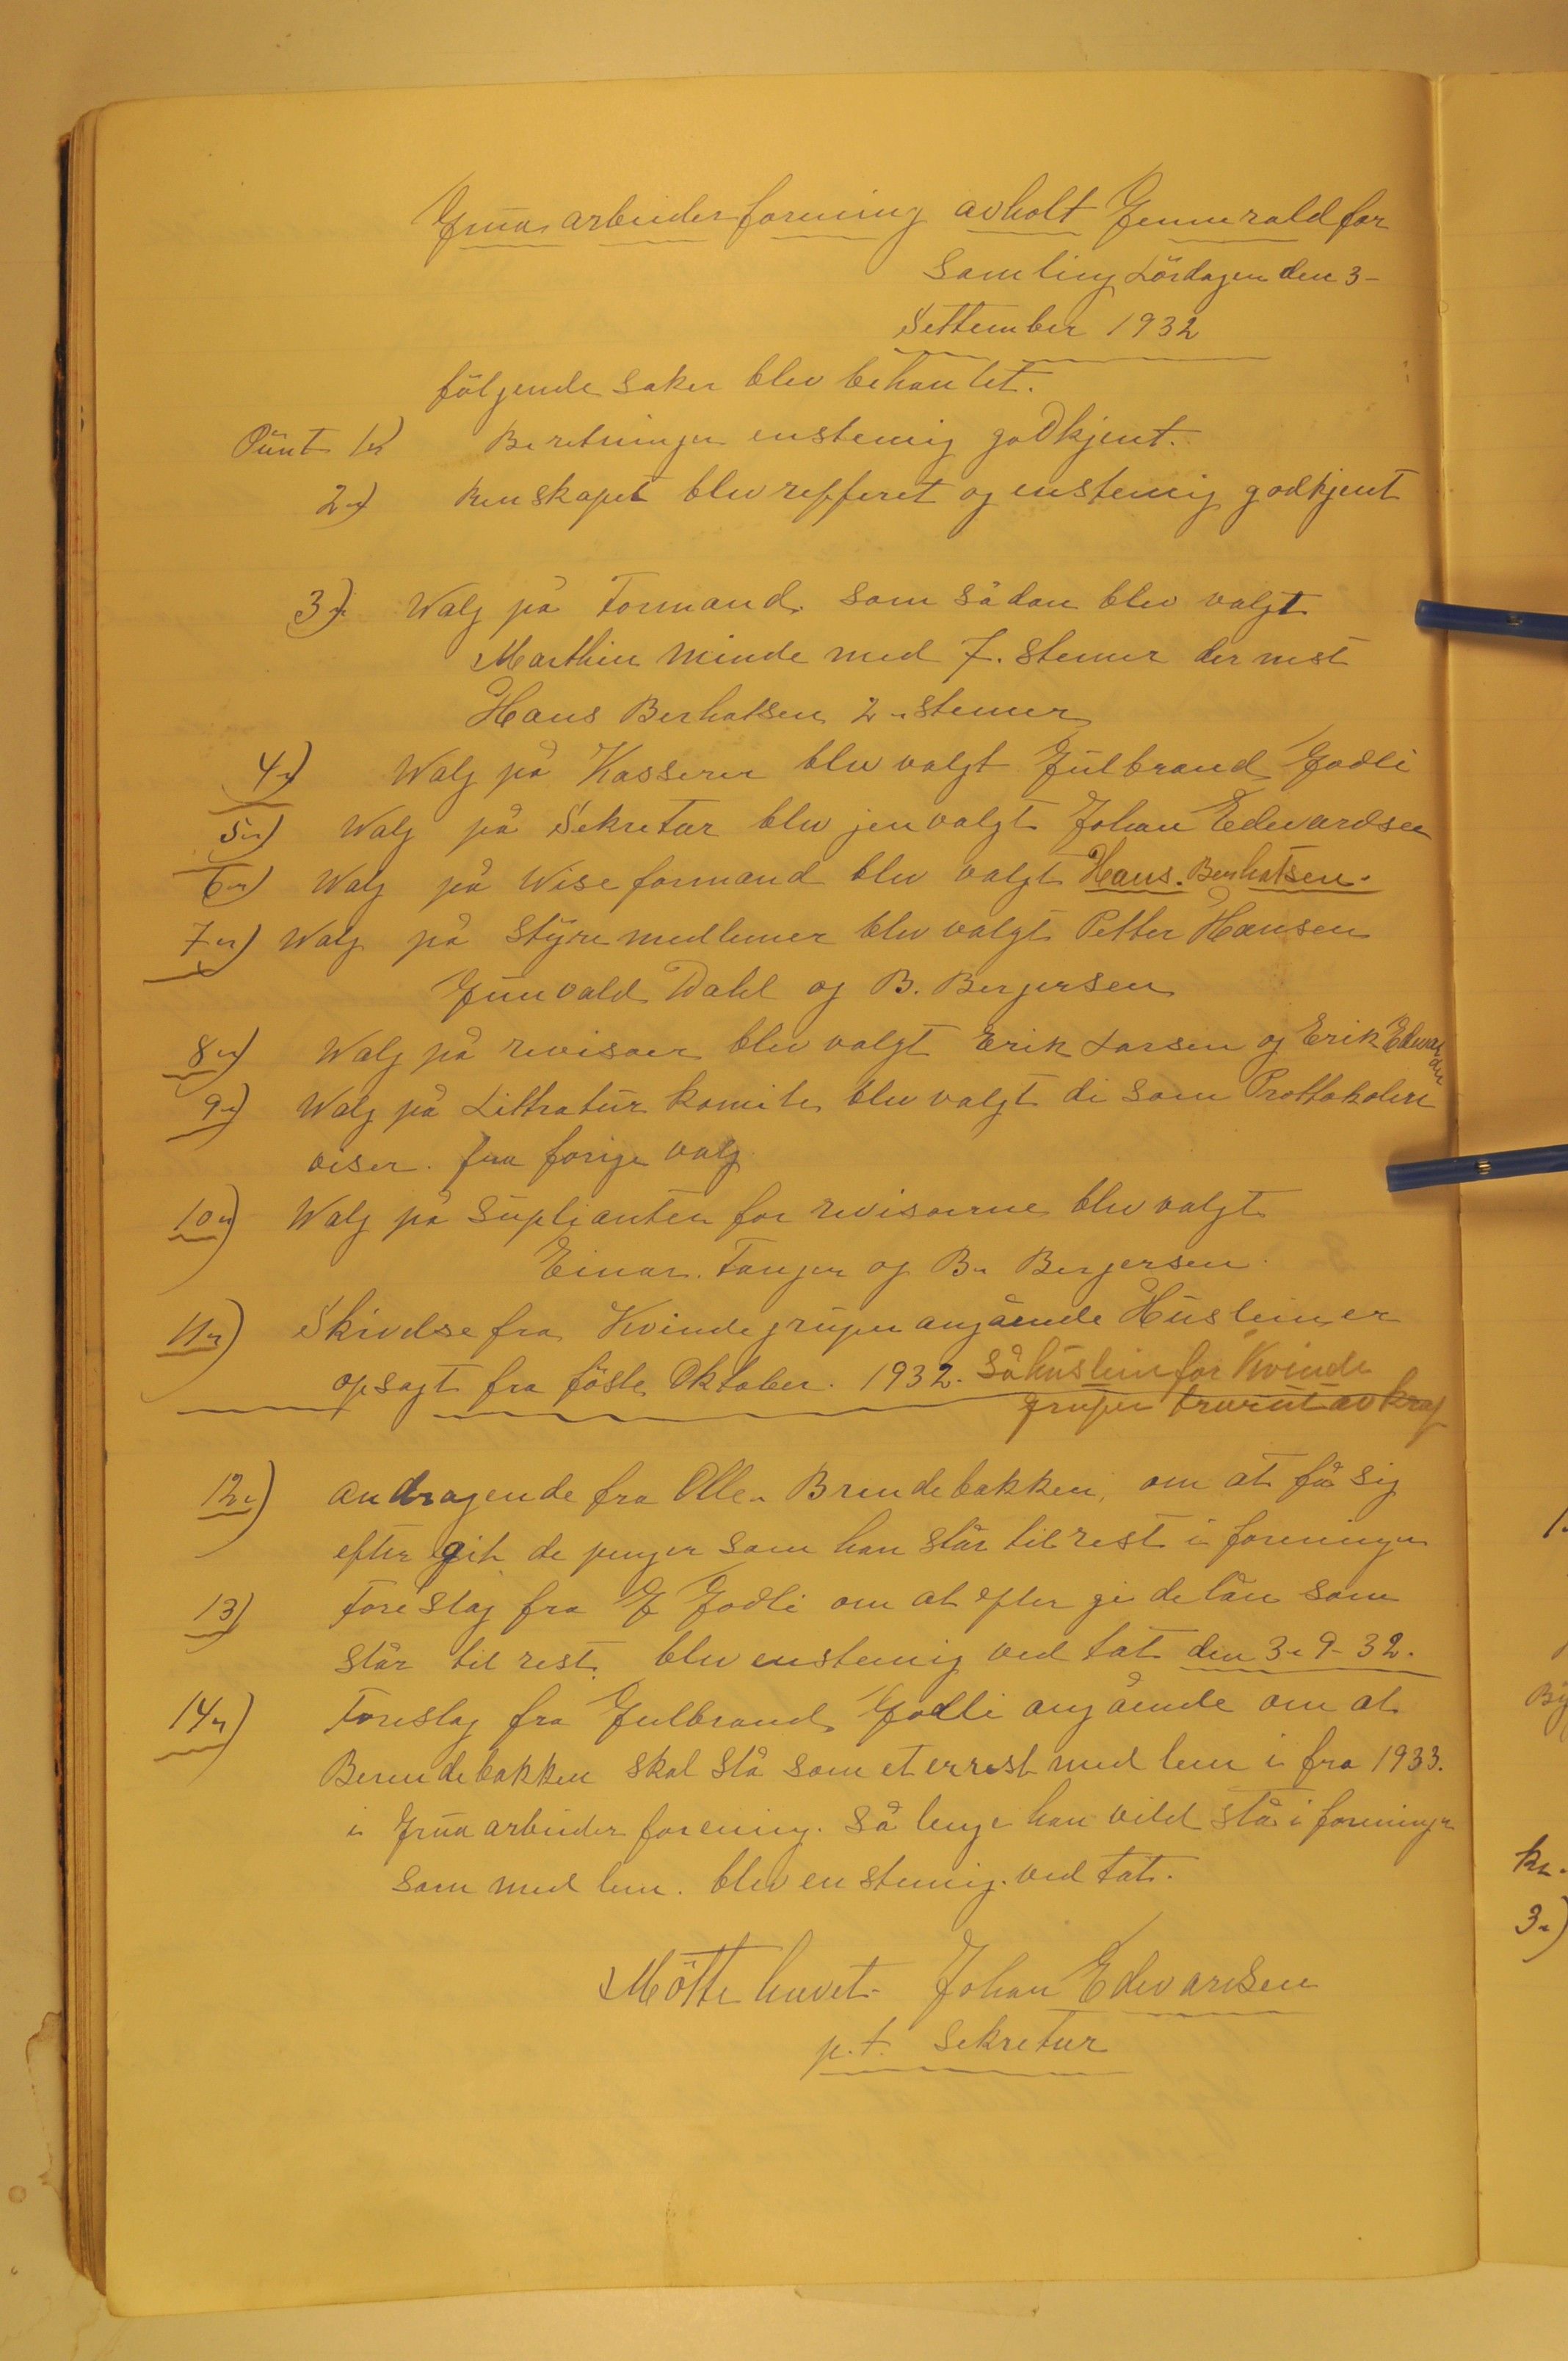 Grua arbeider forening avholt Generald for
samling Lördagen den 3-
Settember 1932
fölgende saker blev behantet.
Punt 1) Beretningen enstemig godkjent.
2) Renskapet blev refferet og enstemig godkjent
3) Walg på Formand som sådan blev valgt
Marthin Minde med 7. stemer der nest
Hans Berhatsen 2 stemer
4) Walg på Kasserer blev valgt Gulbrand Godli
5) Walg på Sekretær blev jenvalgt Johan Edevardsen
6) Walg på Wiseformand blev valgt Hans. Berhatsen.
7) Walg på Styre medlemer blev valgt Petter Hansen
Gunvald Dahl og B. Bergersen
8) Walg på revisoer blev valgt Erik Larsen og Erik Edevardsen
9) Walg på Littratur komite blev valgt di som Prottokolere
viser. fra forige valg
10) Walg på Suplianter for revisoerne blev valgt
Einar. Tanger og B. Bergersen.
11) Skrivelse fra Kvindegrupen angående Husleien er
opsagt fra föste Oktober. 1932. Så husleie for Kvinde
grupen trer ut av kraf
12) andragende fra Olle Brendebakken, om at få sig
efter git de penger som han står til rest i foreningen
13) Foreslag fra G Godli om at efter gi de lån som
står til rest. blev enstemig ved tat den 3-9-32.
14) Foreslag fra Gulbrand Godli angående om at
Berendebakken skal stå som et erres med lem i fra 1933.
i Grua arbeider forening. Så lenge han vild stå i foreningen
som med lem. blev en stemig. ved tat.
Mötte hevet. Johan Edevardsen
p.t. Sekretær
1.
By
kr.
3)